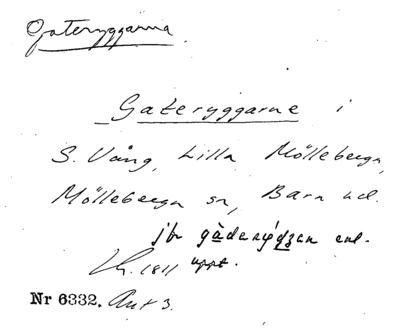 Gateryggarna
Gateryggarne i
S. Vång, Lilla Mölleberga,
Mölleberga sn, Bara hd.
jfr gàderýdzan enl.
1811 uppt.
Nr 6332. Ant 3.